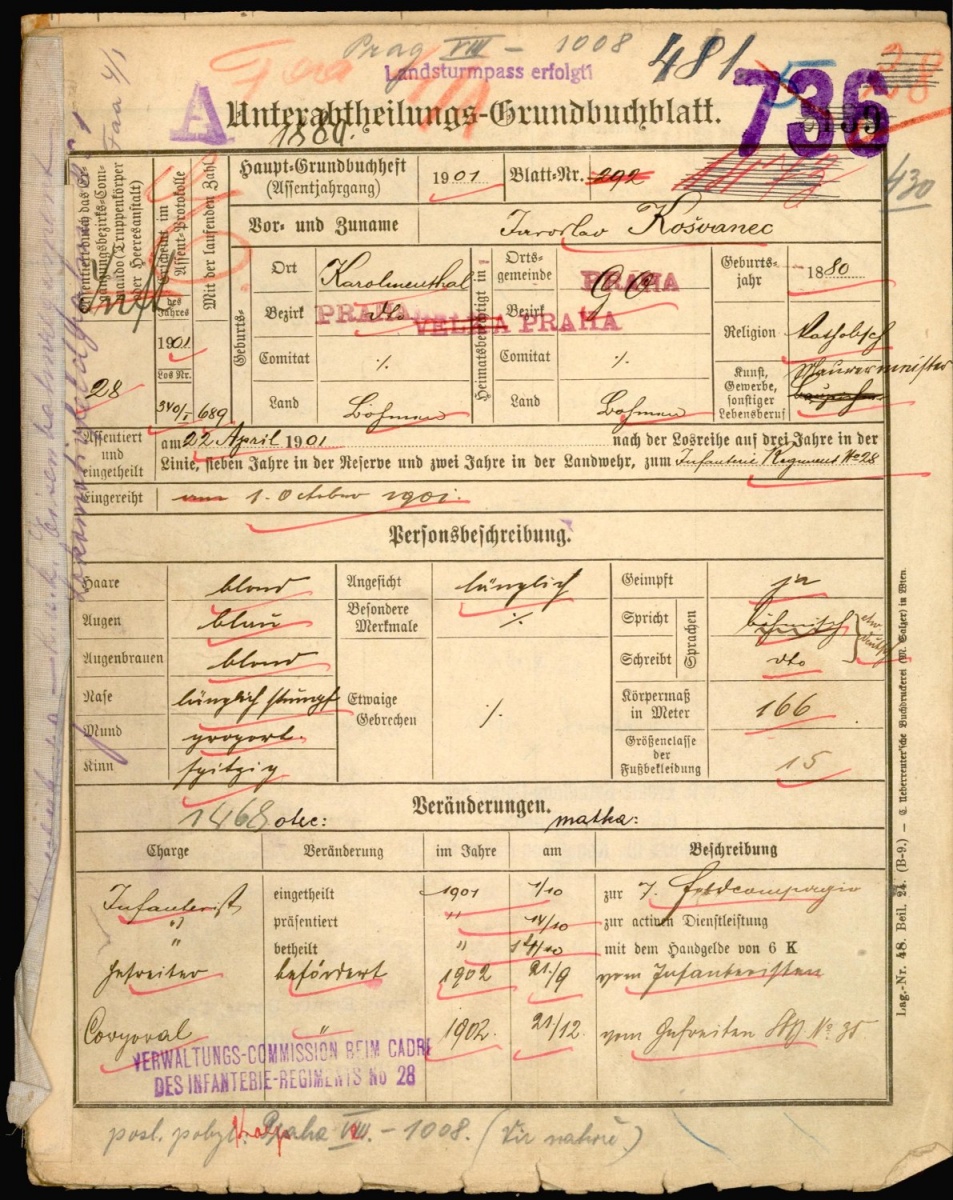 Prag VIII - 1008
481
Landsturmpass erfolgt
736
A Unterabtheilungs-Grundbuchblatt.
1880.
430
Haupt-Grundbuchheft (Assentjahrgang) 1901 Blatt-Nr. 292
Vor- und Zuname Jaroslav Košvanec
Assentiert durch das Ergänzungsbezirks-Commando (Truppenkörper oder Heeresanstalt)
28
Erscheint im Assent-Protokolle
des Jahres 1901
Los Nr. 340/I
Mit der laufenden Zahl 689
Geburts-
Ort Karolinenthal
Bezirk dto
Comitat ·/.
Land Böhmen
Heimatsberechtigt in
Ortsgemeinde PRAHA
Bezirk
VELKÁ PRAHA
Comitat ·/.
Land Böhmen
Geburtsjahr 1880
Religion Katholisch
Kunst, Gewerbe, sonstiger Lebensberuf Maurermeister
Assentiert und eingetheilt am 22 April 1901 nach der Losreihe auf drei Jahre in der
Linie, sieben Jahre in der Reserve und zwei Jahre in der Landwehr, zum Infanterie Regiment No 28
Eingereiht am 1. October 1901.
Personsbeschreibung.
Haare blond
Augen blau
Augenbrauen blond
Nase länglich stumpf
Mund proport.
Kinn spitzig
Angesicht länglich
Besondere Merkmale ·/.
Etwaige Gebrechen ·/.
Geimpft ja
Spricht Sprachen böhmisch
Schreibt dto
Körpermaß in Meter 166
Größenclasse der Fußbekleidung 15
Veränderungen.
1468 otec: matka:
Charge Veränderung im Jahre am Beschreibung
Infanterist eingetheilt 1901 1/10 zur 7. Feldcompagnie
" präsentiert " 14/10 zur activen Dienstleistung
" betheilt " 14/10 mit dem Handgelde von 6 K
Gefreiter befördert 1902 21/9 vom Infanteristen
Corporal " 1902. 21/12. vom Gefreiten
VERWALTUNGS-COMMISSION BEIM CADRE
DES INFANTERIE-REGIMENTS No 28
posl. pobyt Praha VIII. - 1008. (Viz nahoře)
Lag.-Nr. 48. Beil. 24. (B-9.) — C. Ueberreuter'sche Buchdruckerei (M. Salzer) in Wien.